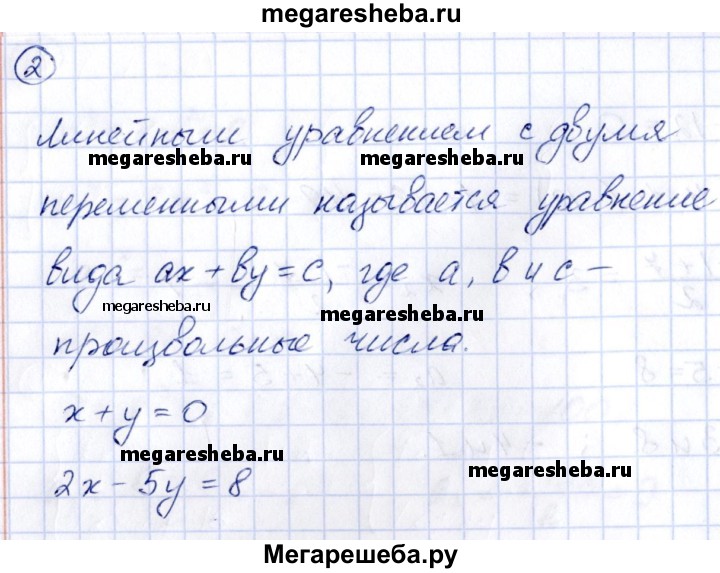 megaresheba.ru
2
Линейным уравнением с двумя
megaresheba.ru megaresheba.ru
переменными называется уравнение
вида ax + by = c, где a, b и c –
megaresheba.ru megaresheba.ru
произвольные числа.
x + y = 0
megaresheba.ru megaresheba.ru
2x - 5y = 8
Мегарешеба.ру